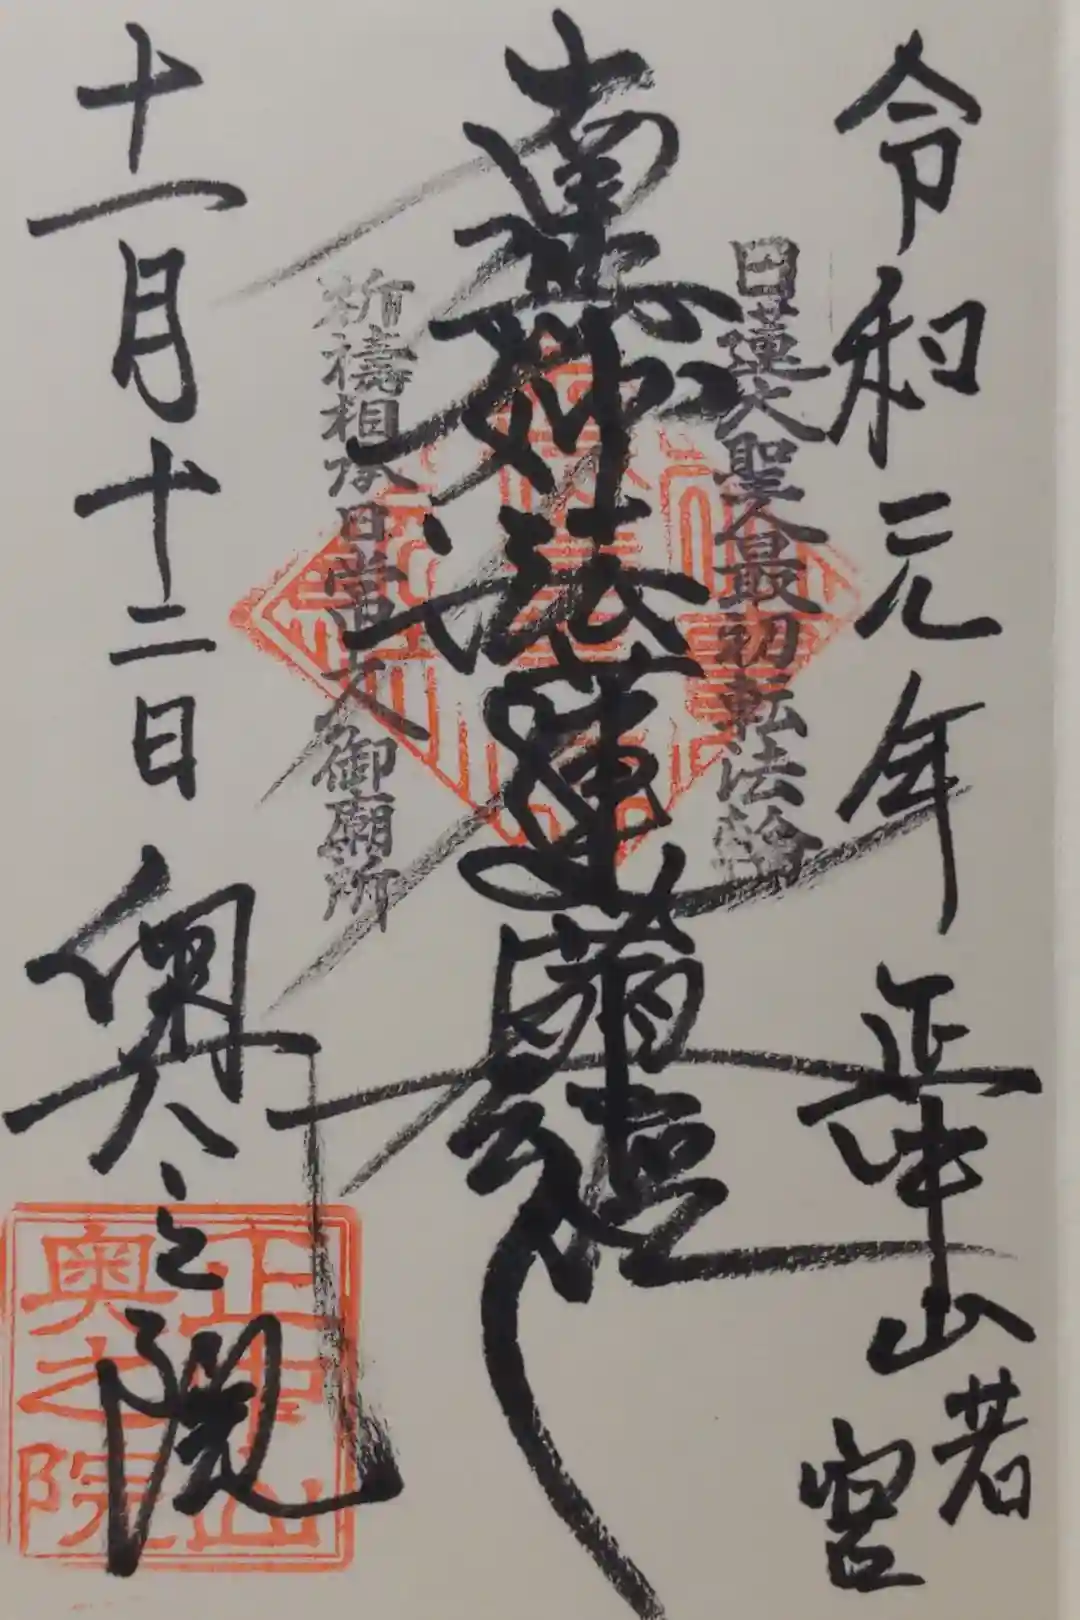 令和元年 正中山若宮
日蓮大聖人最初転法輪
南無妙法蓮華経
祈祷相承日常上人御廟所
十一月十二日 奥之院
正中山
奥之院